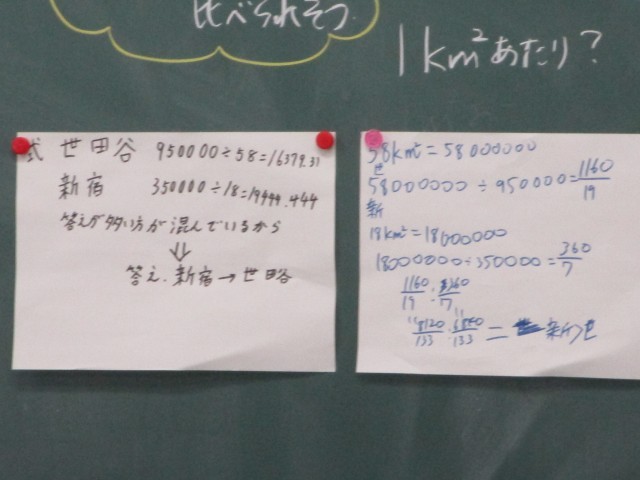 比べられそう
1km²あたり?
式 世田谷 950000÷58=16379.31
新宿 350000÷18=19444.444
答えが多い方が混んでいるから
⇓
答え. 新宿→世田谷
58km²=58000000
世
58000000÷950000=1160/19
新
18km²=18000000
18000000÷350000=360/7
1160/19 : 360/7
8120/133 : 6840/133 = 新、世